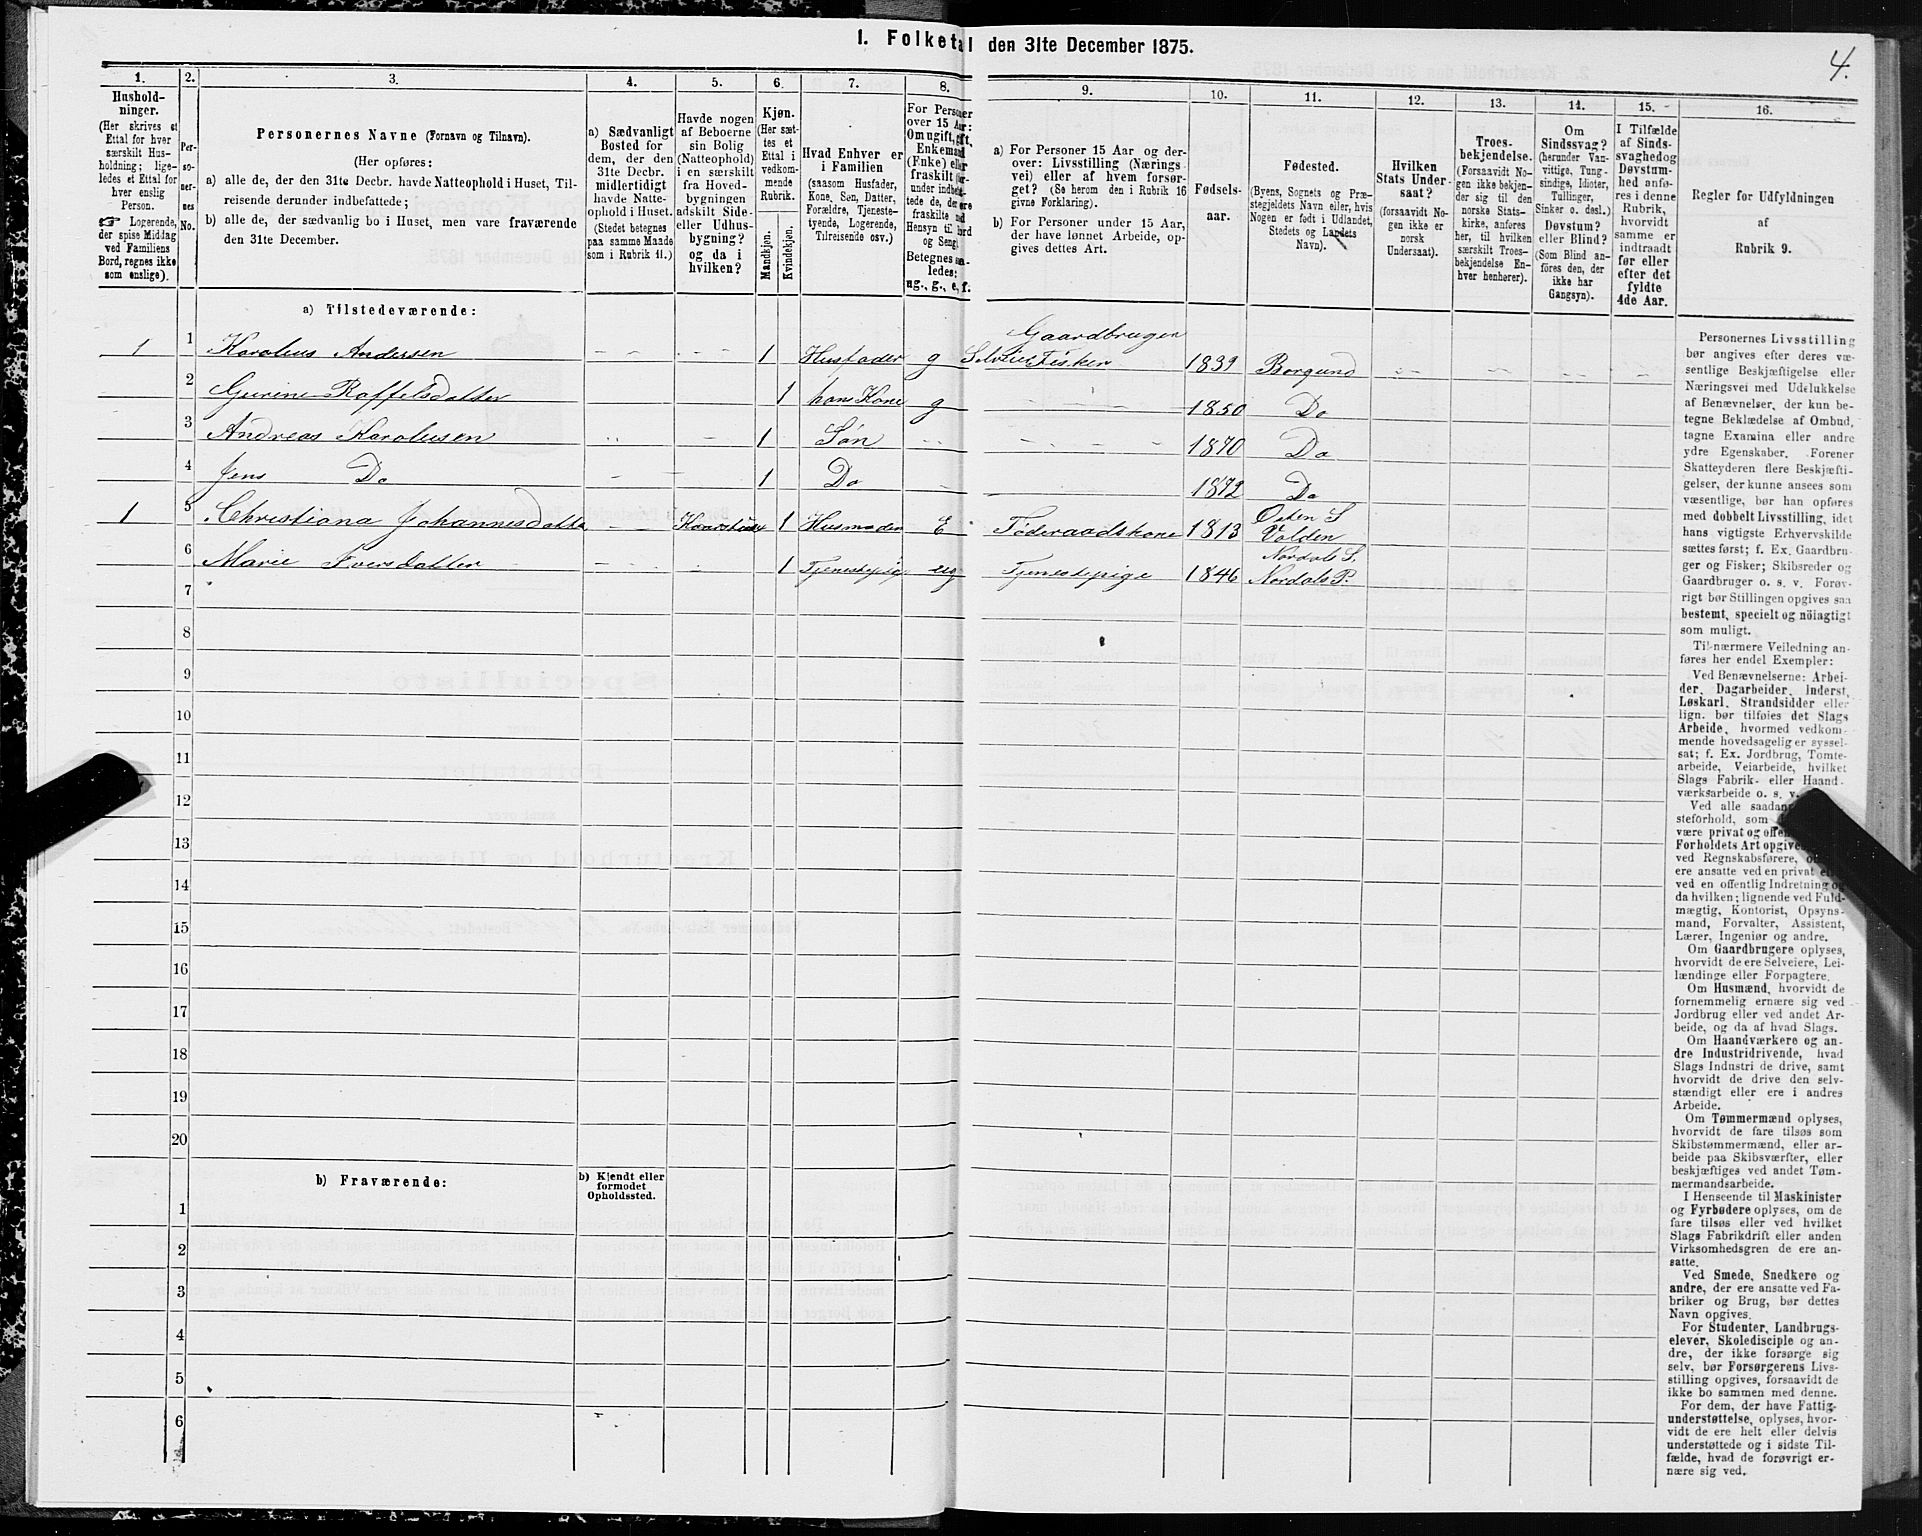 4.
1. Folketal den 31te December 1875.
1. 2. 3. 4. 5. 6. 7. 8. 9. 10. 11. 12. 13. 14. 15. 16.
Hushold-
ninger.
(Her skrives et
Ettal for hver
særskilt Hus-
holdning; lige-
ledes et Ettal for
hver enslig
Person.
☞ Logerende,
der spise Middag
ved Familiens
Bord, regnes ikke
som enslige).
Per-
so-
ner-
nes
No.
Personernes Navne (Fornavn og Tilnavn).
(Her opføres:
a) alle de, der den 31te Decbr. havde Natteophold i Huset, Til-
reisende derunder indbefattede;
b) alle de, der sædvanlig bo i Huset, men vare fraværende
den 31te December.
a) Sædvanligt
Bosted for
dem, der den
31te Decbr.
midlertidigt
havde Natte-
ophold i Huset.
(Stedet betegnes
paa samme Maade
som i Rubrik 11.)
Havde nogen
af Beboerne
sin Bolig
(Natteophold)
i en særskilt
fra Hoved-
bygningen
adskilt Side-
eller Udhus-
bygning?
og da i
hvilken?
Kjøn.
(Her sæt-
tes et
Ettal i
vedkom-
mende
Rubrik.
Mandkjøn.
Kvindekjøn.
Hvad Enhver er
i Familien
(saasom Husfader,
Kone, Søn, Datter,
Forældre, Tjeneste-
tyende, Logerende,
Tilreisende osv.)
For Personer
over 15 Aar:
Om ugift, gift,
Enkemand
(Enke) eller
fraskilt (her-
under indbefat-
tede de, der ere
fraskilte med
Hensyn til Bord
og Seng).
Betegnes saa-
ledes:
ug., g., e, f.
a) For Personer 15 Aar og der-
over: Livsstilling (Nærings-
vei) eller af hvem forsør-
get? (Se herom den i Rubrik 16
givne Forklaring).
b) For Personer under 15 Aar,
der have lønnet Arbeide, op-
gives dettes Art.
Fødsels-
aar.
Fødested.
(Byens, Sognets og Præ-
stegjeldets Navn eller, hvis
Nogen er født i Udlandet,
Stedets og Landets
Navn).
Hvilken
Stats Under-
saat?
(forsaavidt No-
gen ikke er
norsk
Undersaat).
Troes-
bekjendelse.
(Forsaavidt No-
gen ikke bekjen-
der sig til den
norske Stats-
kirke, anføres
her, til hvilken
særskilt Troes-
bekjendelse En-
hver henhører).
Om
Sindssvag?
(herunder Van-
vittige, Tung-
sindige, Idioter,
Tullinger,
Sinker o. desl.)
Døvstum?
eller Blind?
(Som Blind an-
føres den, der
ikke har
Gangsyn).
I Tilfælde
af Sinds-
svaghedog
Døvstum-
hed anfø-
res i denne
Rubrik,
hvorvidt
samme er
indtraadt
før eller
efter det
fyldte
4de Aar.
Regler for Udfyldningen
af
Rubrik 9.
a) Tilstedeværende:
Gaardbruger
1 1 Karolius Andersen 1 Husfader g Selveier Fisker 1839 Borgund
2 Gurine Raffelsdatter 1 hans Kone g 1850 Do
3 Andreas Karolusen 1 Søn 1870 Do
4 Jens Do 1 Do 1872 Do
1 5 Christiana Johannesdatter 1 Husmoder E Føderaadskone 1813 Ørsten S
Volden
6 Marie Iversdatter 1 Tjenestepige ug Tjenestepige 1846 Nordals S.
Nordals P.
7
8
9
10
11
12
13
14
15
16
17
18
19
20
b) Fraværende:
b) Kjendt eller
formodet
Opholdssted.
1
2
3
4
5
6
Personernes Livsstilling
bør angives efter deres væ-
sentlige Beskjæftigelse eller
Næringsvei med Udelukkelse
af Benævnelser, der kun be-
tegne Beklædelse af Ombud,
tagne Examina eller andre
ydre Egenskaber. Forener
Skatteyderen flere Beskjæfti-
gelser, der kunne ansees som
væsentlige, bør han opføres
med dobbelt Livsstilling, idet
hans vigtigste Erhvervskilde
sættes først; f. Ex. Gaardbru-
ger og Fisker; Skibsreder og
Gaardbruger o. s. v. Forøv-
rigt bør Stillingen opgives saa
bestemt, specielt og nöiagtigt
som muligt.
Til nærmere Veiledning an-
føres her endel Exempler:
Ved Benævnelserne: Arbei-
der, Dagarbeider, Inderst,
Løskarl, Strandsidder eller
lign. bør tilføies det Slags
Arbeide, hvormed vedkom-
mende hovedsagelig er syssel-
sat; f. Ex. Jordbrug, Tomte-
arbeide, Veiarbeide, hvilket
Slags Fabrik- eller Haand-
værksarbeide o. s. v.
Ved alle saadan
steforhold, som
være privat og offen
Forholdets Art opgives
ved Regnskabsførere,
ere ansatte ved en privat
ved en offentlig Indretning og
da hvilken; lignende ved Fuld-
mægtig, Kontorist, Opsyns-
mand, Forvalter, Assistent,
Lærer, Ingeniør og andre.
Om Gaardbrugere oplyses,
hvorvidt de ere Selveiere, Lei-
lændinge eller Forpagtere.
Om Husmænd, hvorvidt de
fornemmelig ernære sig ved
Jordbrug eller ved andet Ar-
beide, og da af hvad Slags.
Om Haandværkere og an-
dre Industridrivende, hvad
Slags Industri de drive, samt
hvorvidt de drive den selv-
stændigt eller ere i andres
Arbeide.
Om Tømmermænd oplyses,
hvorvidt de fare tilsøs som
Skibstømmermænd, eller ar-
beide paa Skibsværfter, eller
beskjæftiges ved andet Tøm-
mermandsarbeide.
I Henseende til Maskinister
og Fyrbødere oplyses, om de
fare tilsøs eller ved hvilket
Slags Fabrikdrift eller anden
Virksomhedsgren de ere an-
satte.
Ved Smede, Snedkere og
andre, der ere ansatte ved Fa-
briker og Brug, bør dettes
Navn opgives.
For Studenter, Landbrugs-
elever, Skoledisciple og an-
dre, der ikke forsørge sig
selv, bør Forsørgerens Livs-
stilling opgives, forsaavidt de
ikke bo sammen med denne.
For dem, der have Fattig-
understøttelse, oplyses, hvor-
vidt de ere helt eller delvis
understøttede og i sidste Til-
fælde, hvad de forøvrigt er-
nære sig ved.